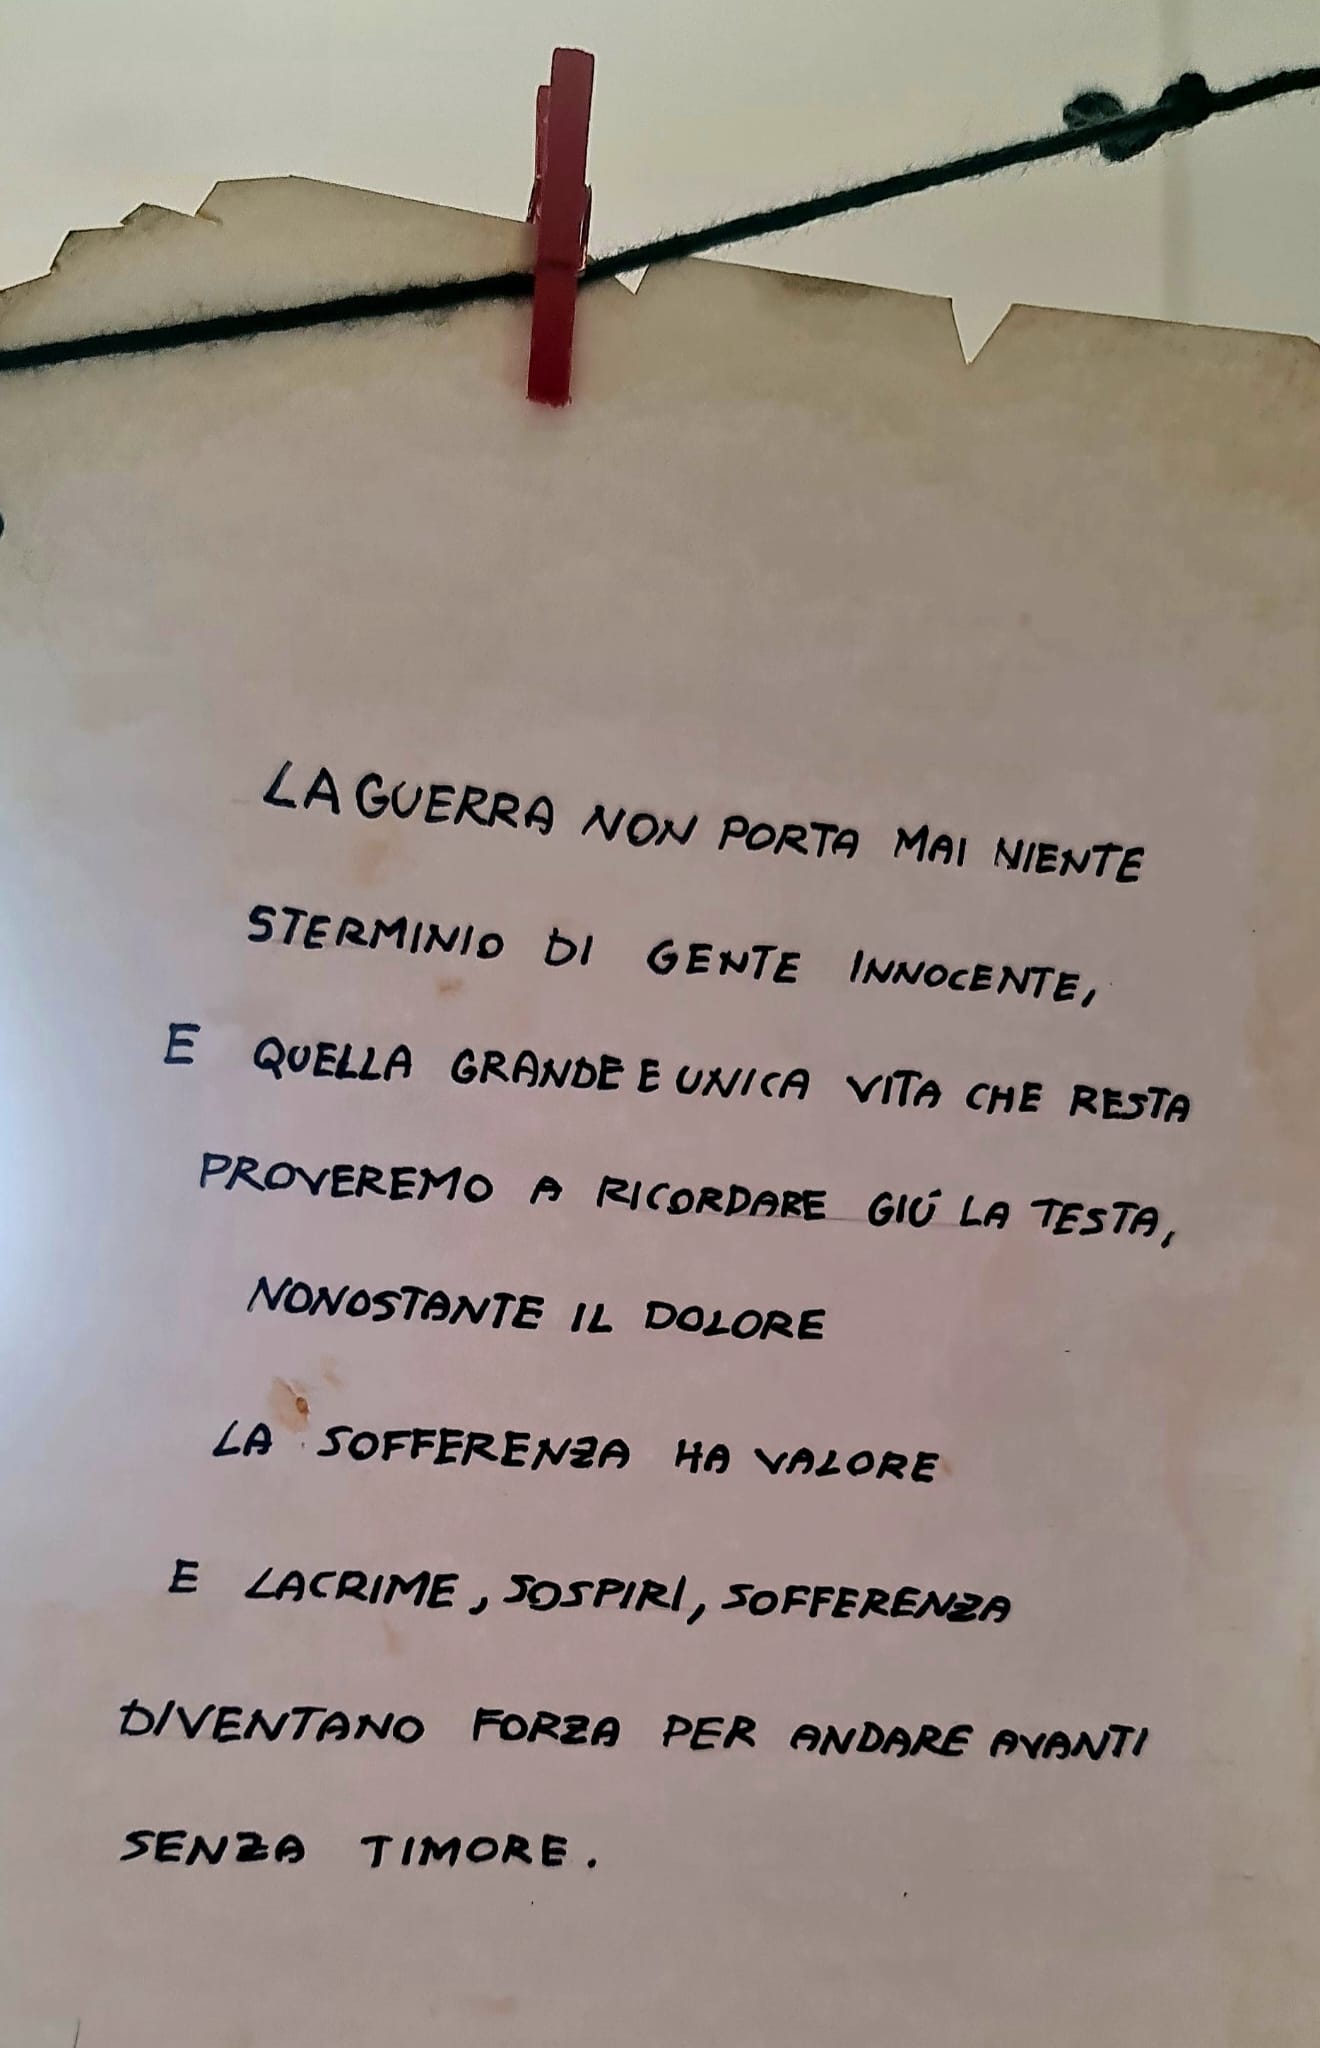 LA GUERRA NON PORTA MAI NIENTE
STERMINIO DI GENTE INNOCENTE,
E QUELLA GRANDE E UNICA VITA CHE RESTA
PROVEREMO A RICORDARE GIÚ LA TESTA,
NONOSTANTE IL DOLORE
LA SOFFERENZA HA VALORE
E LACRIME, SOSPIRI, SOFFERENZA
DIVENTANO FORZA PER ANDARE AVANTI
SENZA TIMORE.